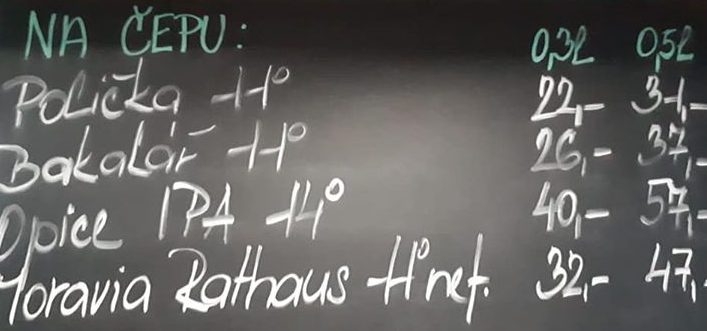 NA ČEPU: 0,3l 0,5l
Polička 11° 22,- 31,-
Bakalář 11° 26,- 37,-
Opice IPA 14° 40,- 57,-
Moravia Rathaus 11° nef. 32,- 47,-